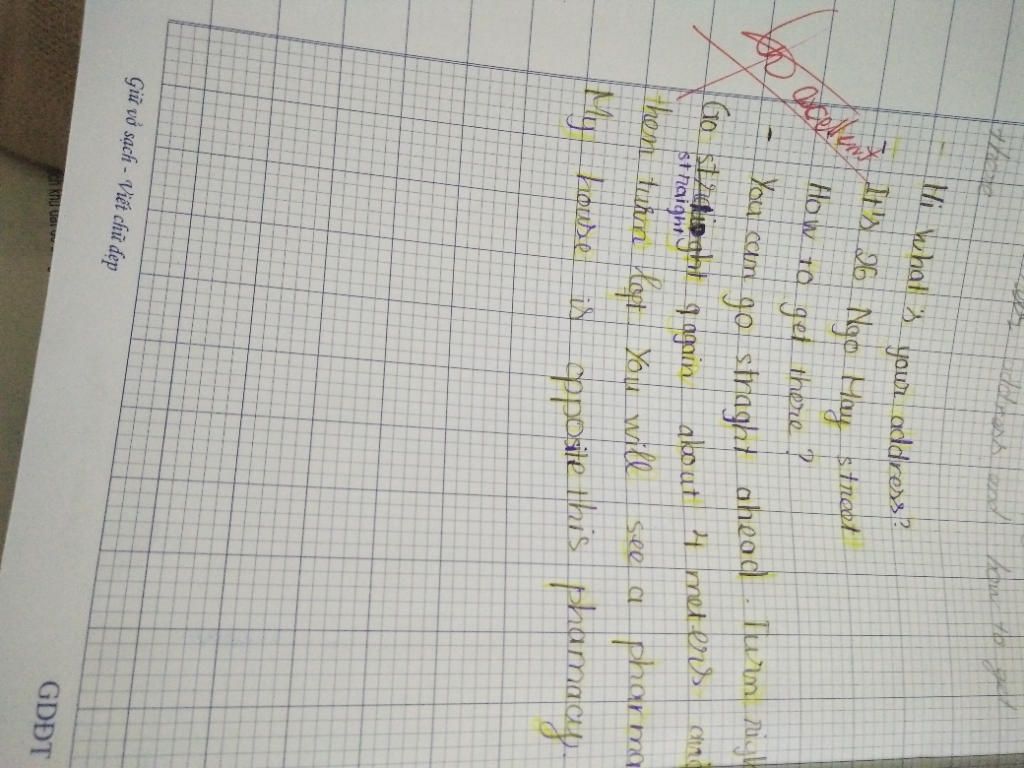 address and how to get
- Hi what is your address?
- It's 26 Ngo May street
How to get there?
- You can go straght ahead. Turn
Go straight again about 4 meters and
straight
then turn left You will see a pharma
My house is opposite this pharmacy.
Giữ vở sạch - Viết chữ đẹp
GDĐT